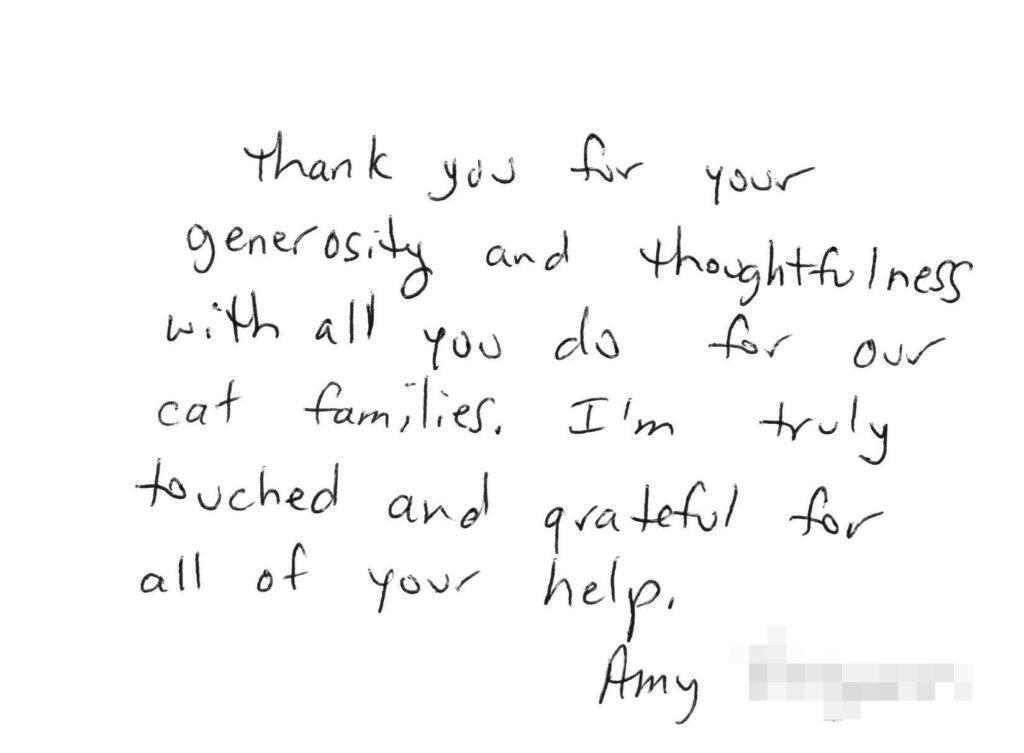 Thank you for your
generosity and thoughtfulness
with all you do for our
cat families. I'm truly
touched and grateful for
all of your help.
Amy